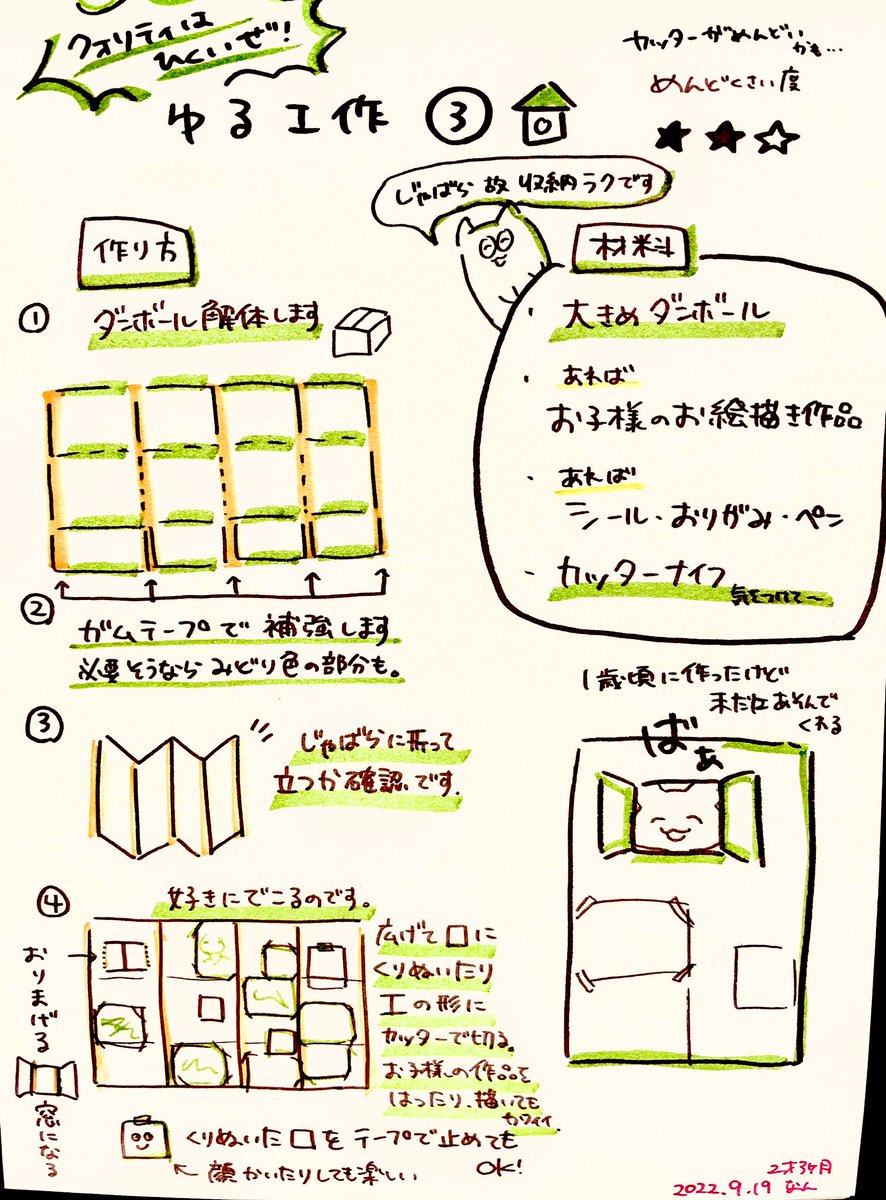 クオリティは
ひくいぜ!
カッターがめんどい
かも…
めんどくさい度
★★☆
ゆる工作 ③
じゃばら故 収納ラクです
材料
・大きめダンボール
・あれば
お子様のお絵描き作品
・あれば
シール・おりがみ・ペン
・カッターナイフ
気をつけて〜
作り方
① ダンボール解体します
② ガムテープで補強します
必要そうならみどり色の部分も。
③ じゃばらに折って
立つか確認です.
④ 好きにでこるのです。
広げて□に
くりぬいたり
工の形に
カッターで切る。
お子様の作品を
はったり、描いても
カワイイ
おりまげる
窓になる
くりぬいた□をテープで止めても
OK!
← 顔かいたりしても楽しい
1歳頃に作ったけど
未だにあそんで
くれる
ばぁ
2才3ヶ月
2022.9.19 なん